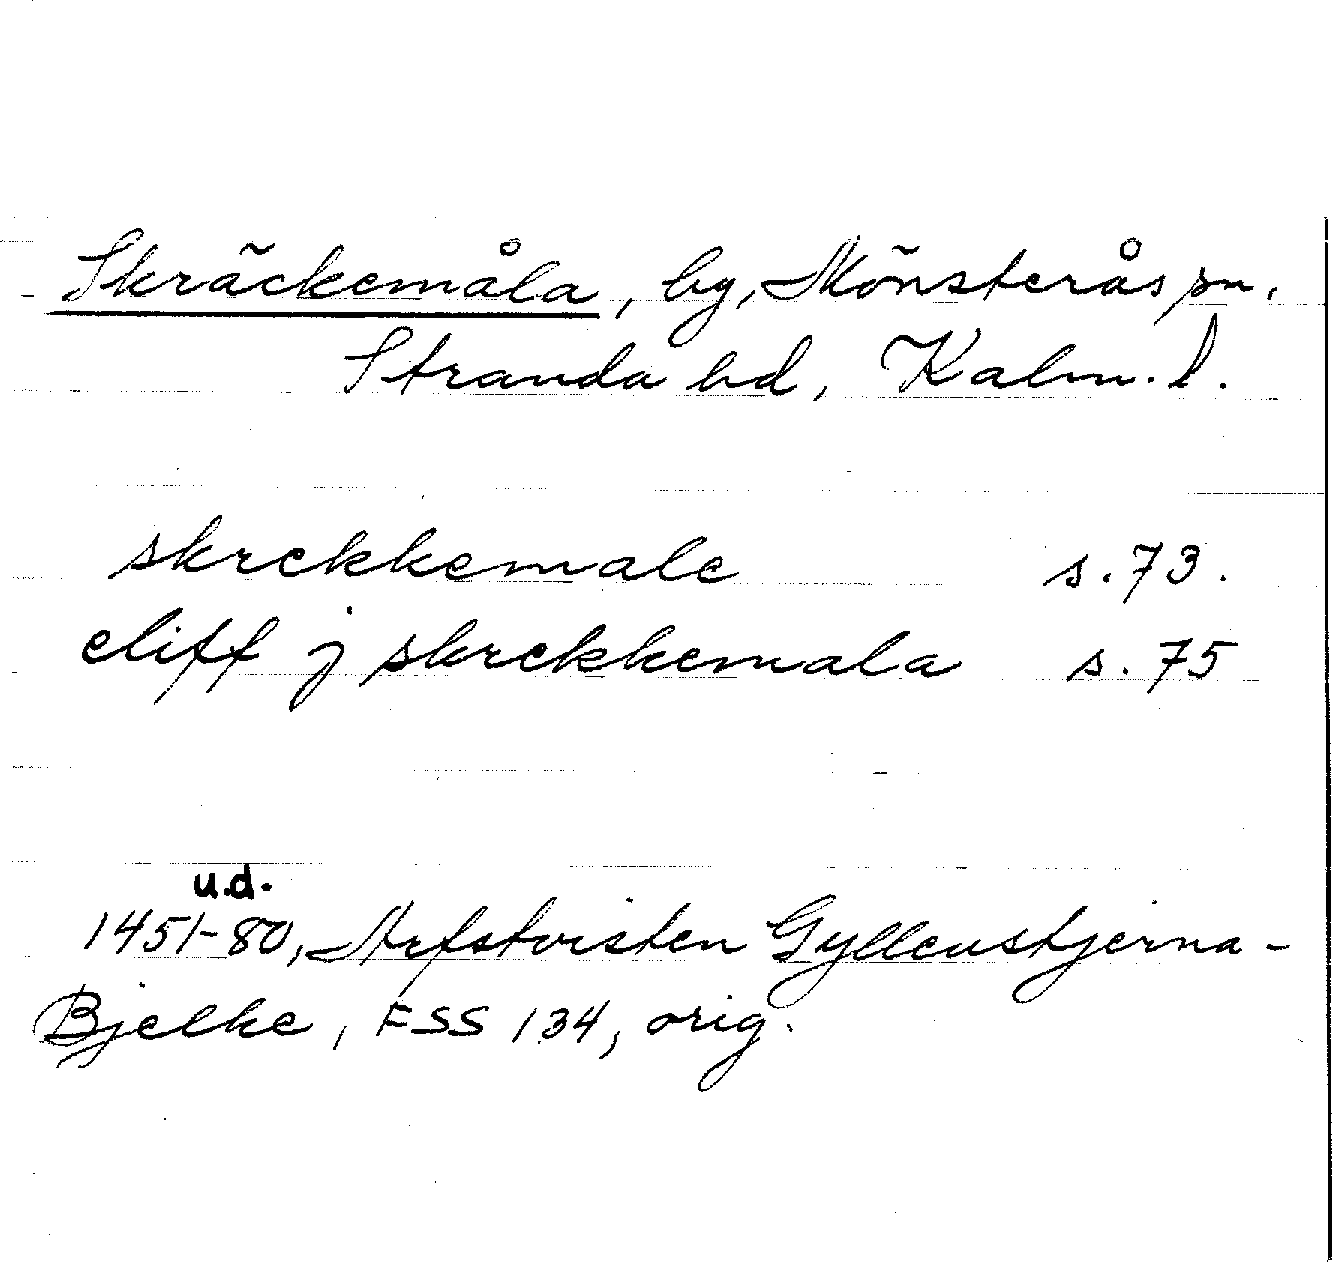 Skräckemåla, by, Mönsterås sn.
Stranda hd, Kalm. l.
skrekkemale s. 73.
eliff j skrekkemala s. 75
u.d.
1451-80, Arfstvisten Gyllenstjerna-
Bjelke, FSS 134, orig.